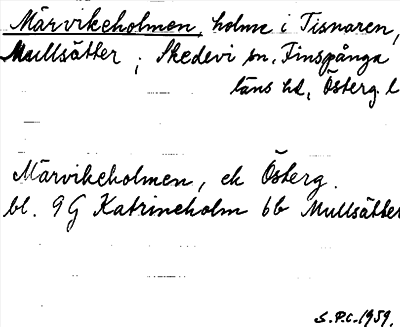 Märvikeholmen, holme i Tisnaren,
Mullsätter, Skedevi sn, Finspånga
läns hd, Österg. l
Märvikeholmen, ek Österg.
bl. 9G Katrineholm 6b Mullsätter
S.P.C. 1959.